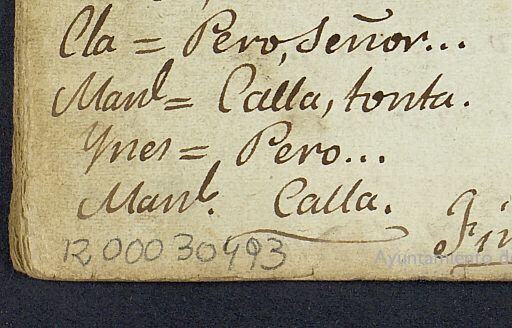 Cla = Pero, Señor...
Man.l = Calla, tonta.
Ynes = Pero...
Man.l Calla.
Fin
12000030493
Ayuntamiento de